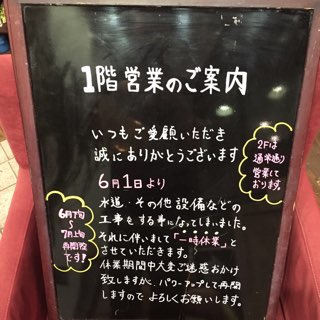 1階営業のご案内
いつもご愛顧いただき
誠にありがとうございます
2Fは
通常通り
営業して
おります。
6月1日より
水道・その他設備などの
工事をする事になってしまいました。
それに伴いまして「一時休業」と
させていただきます。
休業期間中大変ご迷惑おかけ
致しますが、パワーアップして再開
しますので よろしくお願いします。
6月下旬
〜
7月上旬
再開予定
です!